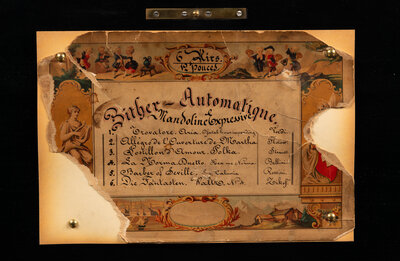 6 Airs.
12 Pouces.
Zither-Automatique.
& Mandoline Expressive
1. Trovatore. Aria. Verdi
2. Allegro de l'Ouverture de Martha Flotow
3. Postillon d'Amour. Polka Strauss
4. La Norma. Duetto. Bellini
5. Barber of Seville, La Calunia Rossini
6. Die Fantasten. Waltz. Ziehrer